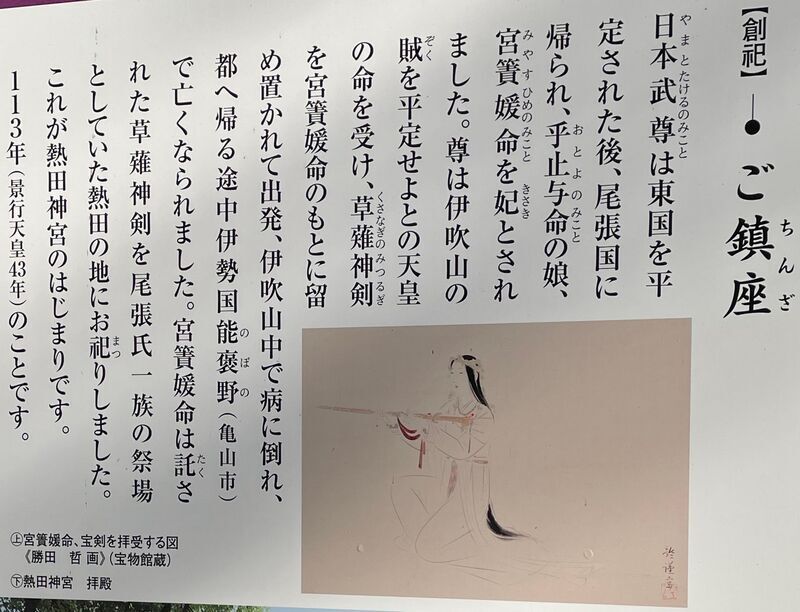 【創祀】―●ご鎮座
ちんざ
日本武尊は東国を平
やまとたけるのみこと
定された後、尾張国に
帰られ、乎止与命の娘、
おとよのみこと
宮簀媛命を妃とされ
みやすひめのみこと きさき
ました。尊は伊吹山の
賊を平定せよとの天皇
ぞく
の命を受け、草薙神剣
くさなぎのみつるぎ
を宮簀媛命のもとに留
め置かれて出発、伊吹山中で病に倒れ、
都へ帰る途中伊勢国能褒野(亀山市)
のぼの
で亡くなられました。宮簀媛命は託さ
たく
れた草薙神剣を尾張氏一族の祭場
としていた熱田の地にお祀りしました。
まつ
これが熱田神宮のはじまりです。
113年(景行天皇43年)のことです。
㊤宮簀媛命、宝剣を拝受する図
《勝田 哲 画》(宝物館蔵)
㊦熱田神宮 拝殿